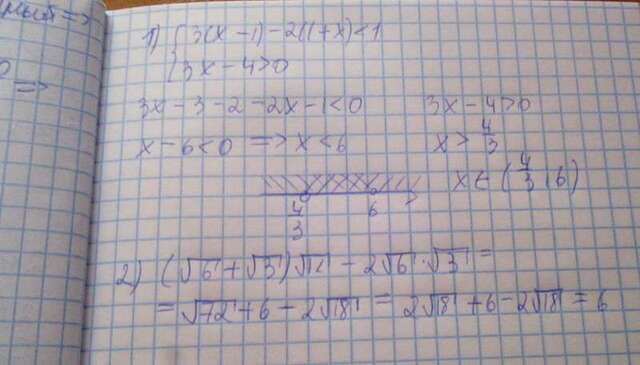 1) { 3(x - 1) - 2(1 + x) < 1
3x - 4 > 0
3x - 3 - 2 - 2x - 1 < 0    3x - 4 > 0
x - 6 < 0 => x < 6    x > 4/3
4/3    6    x ∈ (4/3 ; 6)
2) (√6 + √3)√12 - 2√6 · √3 =
= √72 + 6 - 2√18 = 2√18 + 6 - 2√18 = 6
=>
=>